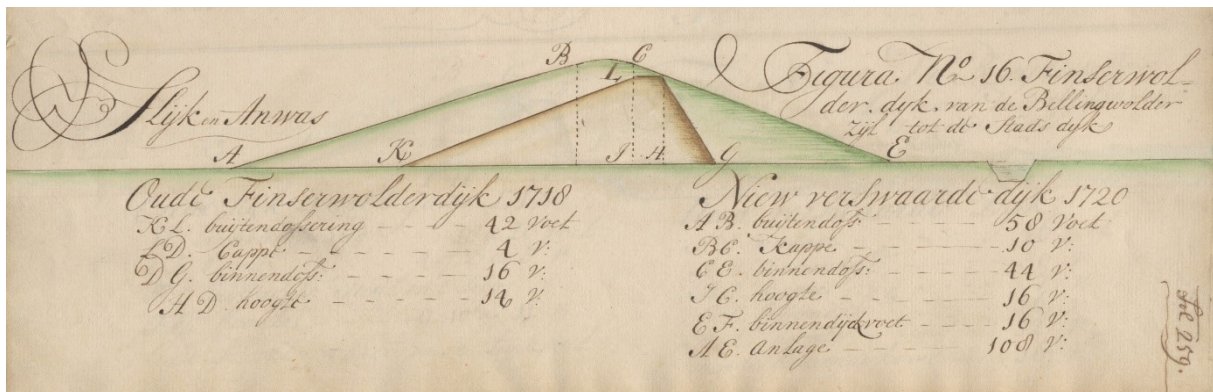 Slijk en Anwas
A
B
L
C
K
I
H
G
E
Figura. No 16. Finserwol-
der. dyk. van de Bellingwolder
zijl tot de Stads dyk
Oude Finserwolderdijk 1718
K L. buijtendossering - - - 42 Voet
L D. Cappe - - - - - 4 V:
D G. binnendoss: - - - - 16 V:
H D. hoogte - - - - - 14 V:
Niew verswaarde dijk 1720
A B. buijtendoss - - - - 58 Voet
B C. Kappe - - - - - 10 V:
C E. binnendoss: - - - - 44 V:
I C. hoogte - - - - - 16 V:
E F. binnendijckvoet - - - - 16 V:
A E. Anlage - - - - - 108 V:
fol 259.